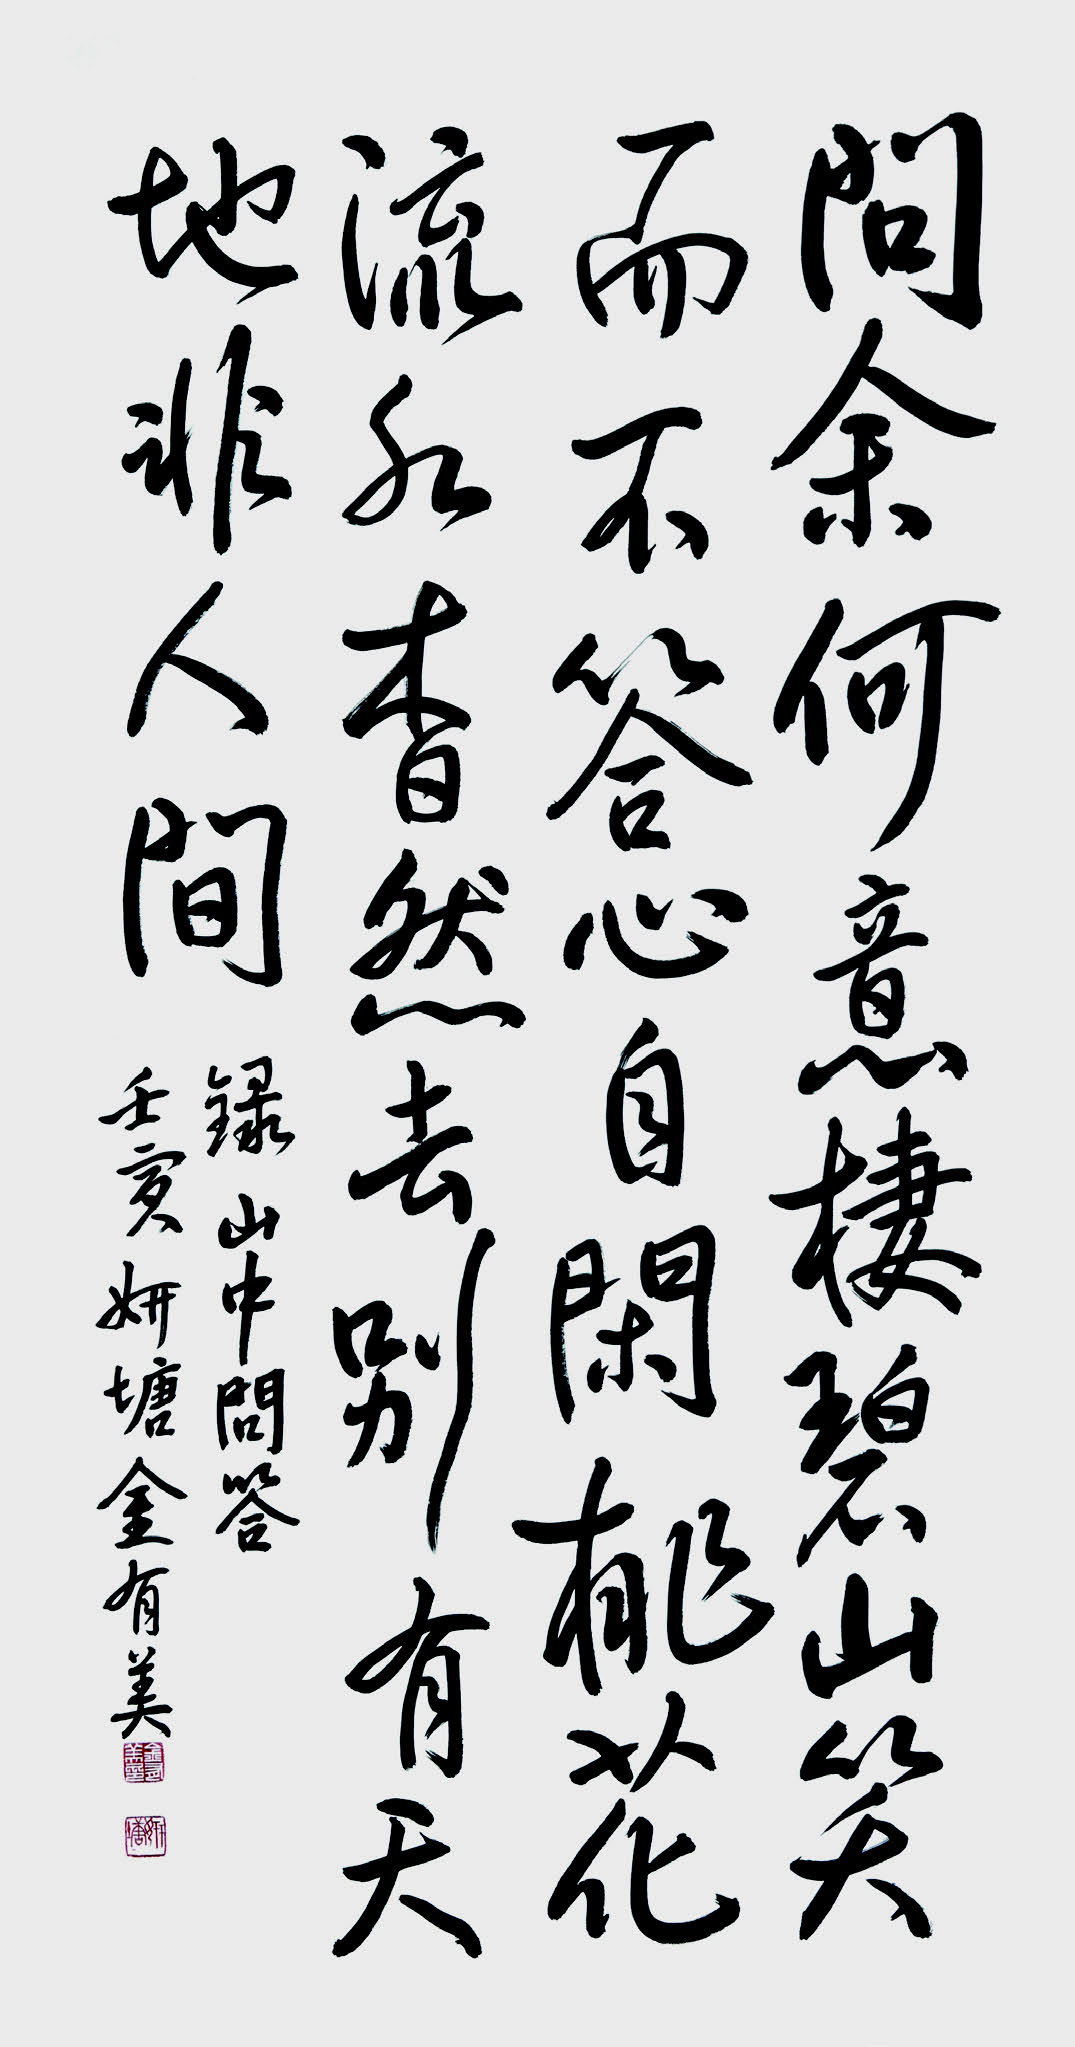 問余何意棲碧山笑
而不答心自閑桃花
流水杳然去別有天
地非人間
録山中問答
壬寅妍塘金有美
妍塘